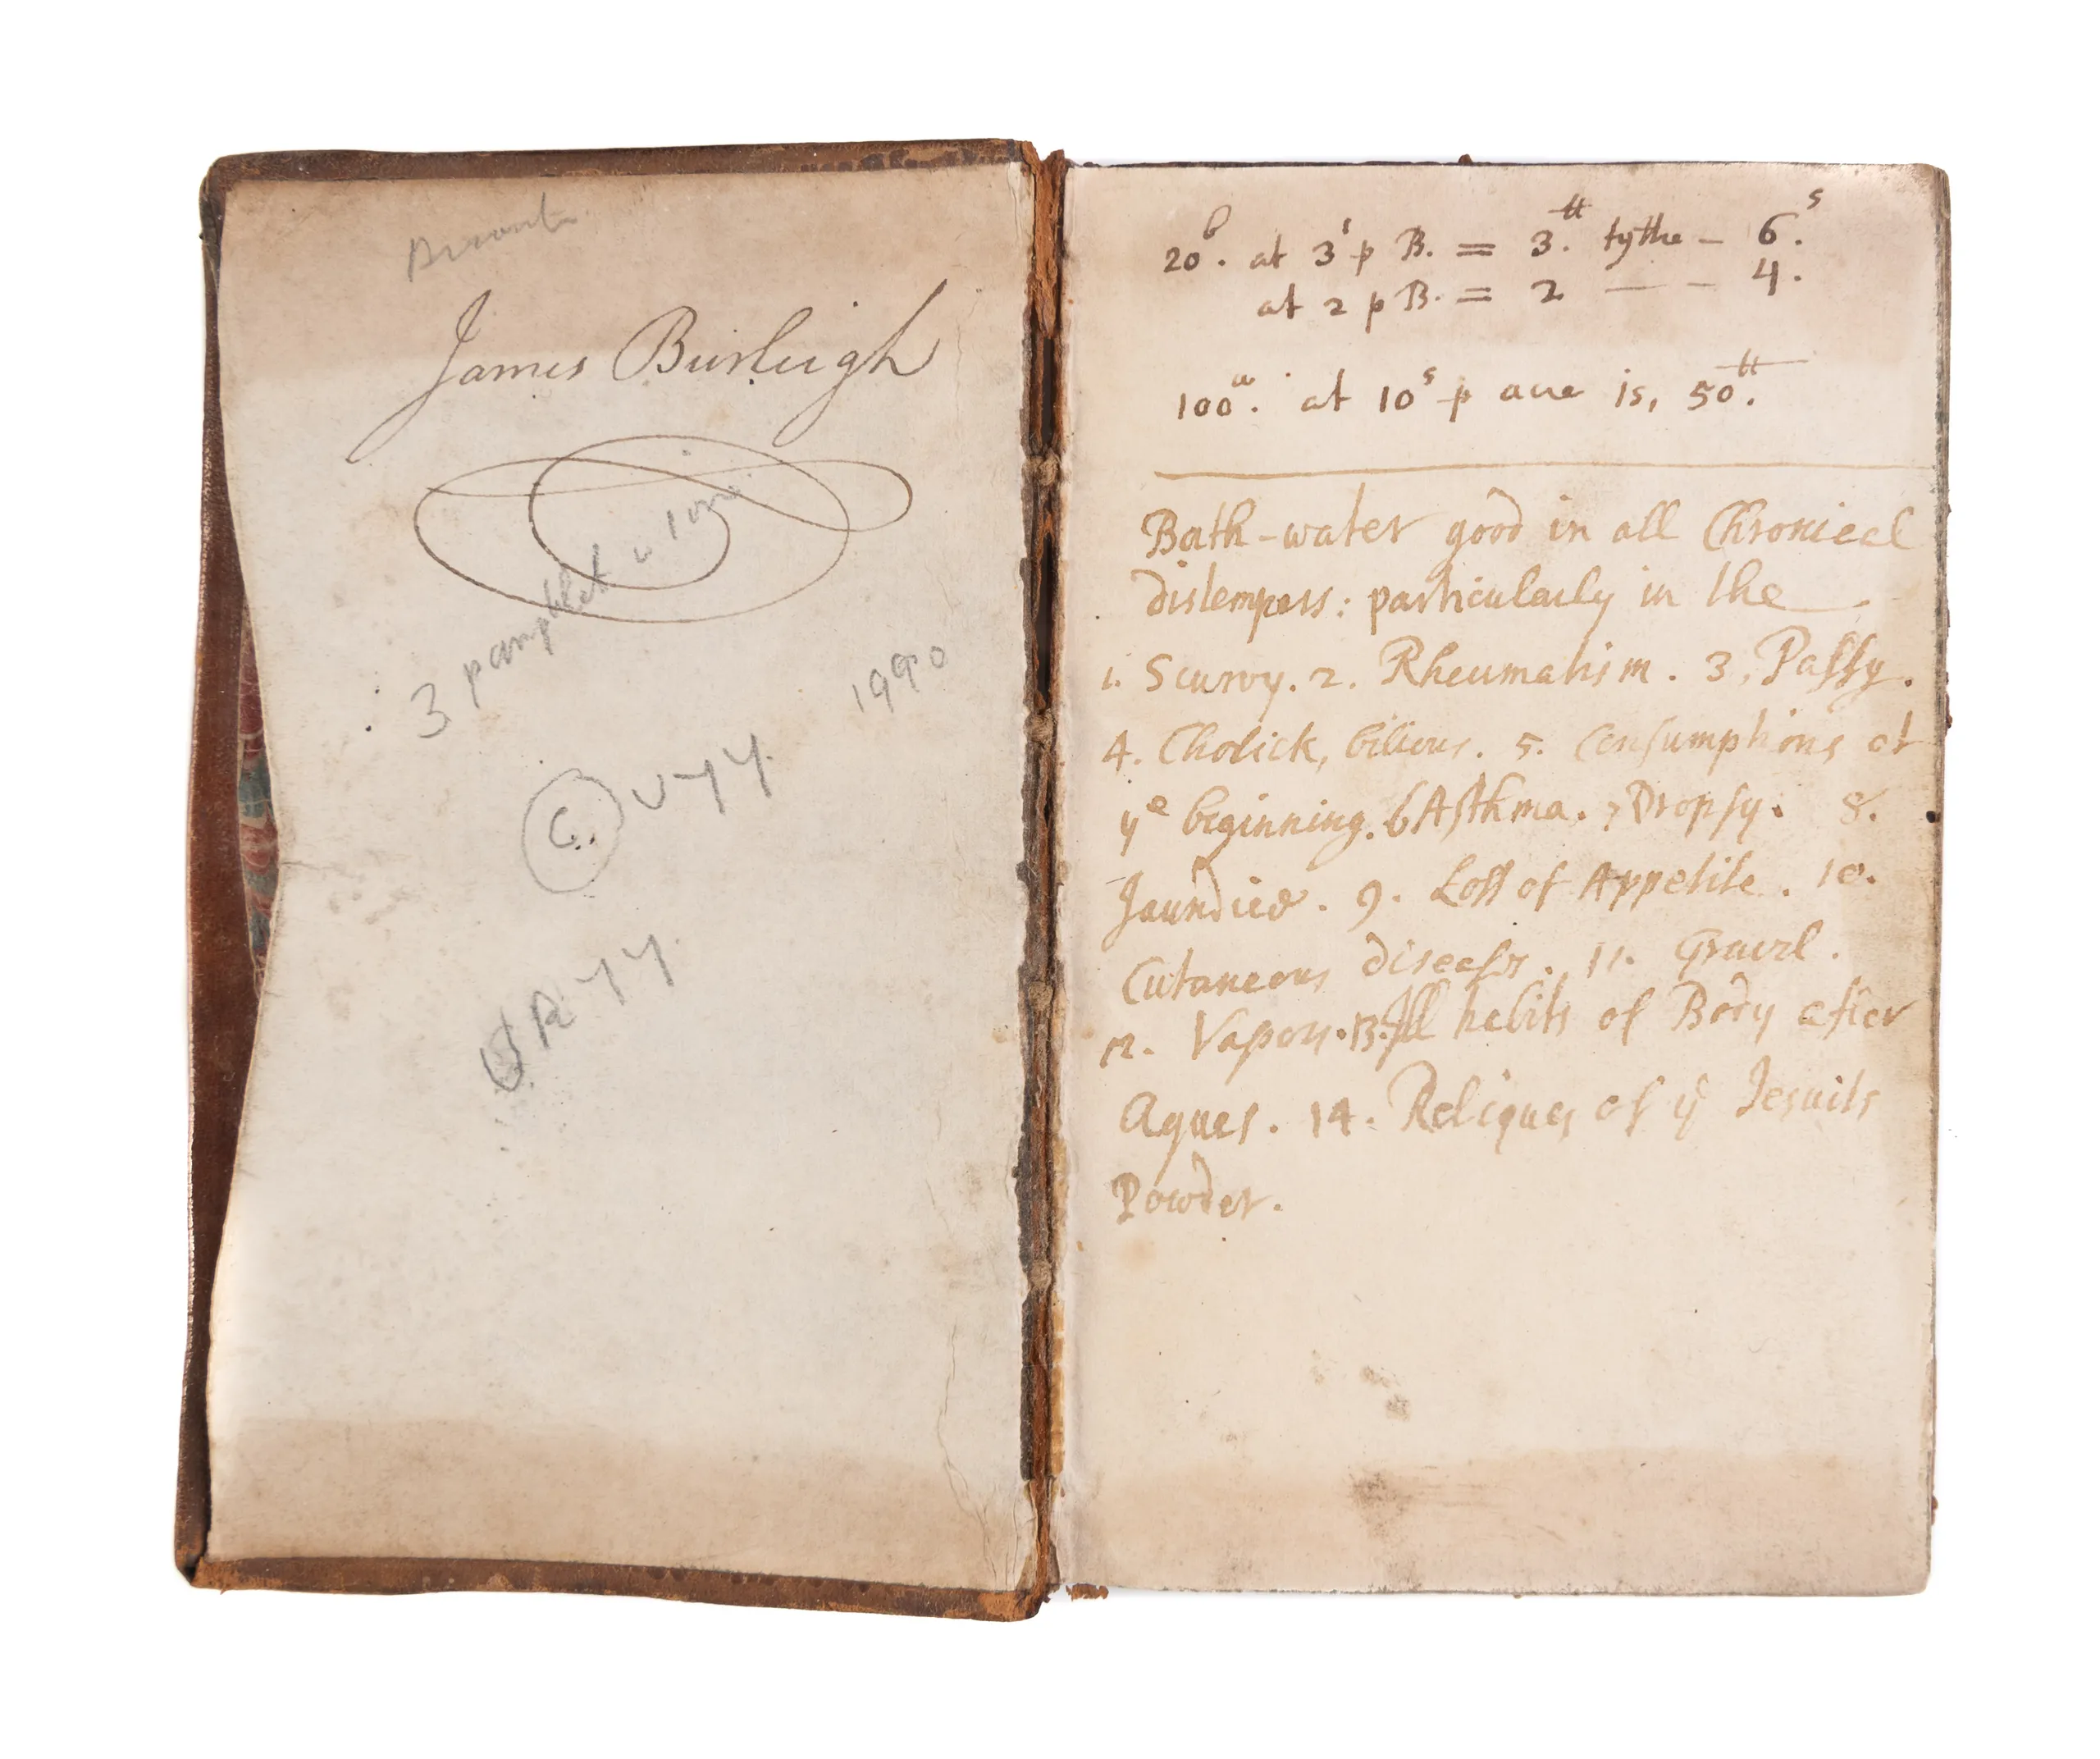 James Burleigh
3 pamphlet
1990
C. U77
UR77
20ᵇ. at 3ˢ p B. = 3.ˡˡ tythe – 6.ˢ
at 2 p B. = 2 — – 4.
100ᵃ. at 10ˢ p acre is, 50ˡˡ.
Bath-water good in all Chronical
distempers: particularly in the
1. Scurvy. 2. Rheumatism. 3, Palsy.
4. Cholick, bilious. 5. Consumptions at
yᵉ beginning. 6 Asthma. 7 Dropsy. 8.
Jaundice. 9. Loss of Appetite. 10.
Cutaneous diseases. 11. Gravel.
12. Vapors. 13. Ill habits of Body after
Agues. 14. Reliques of yᵉ Jesuits
Powder.